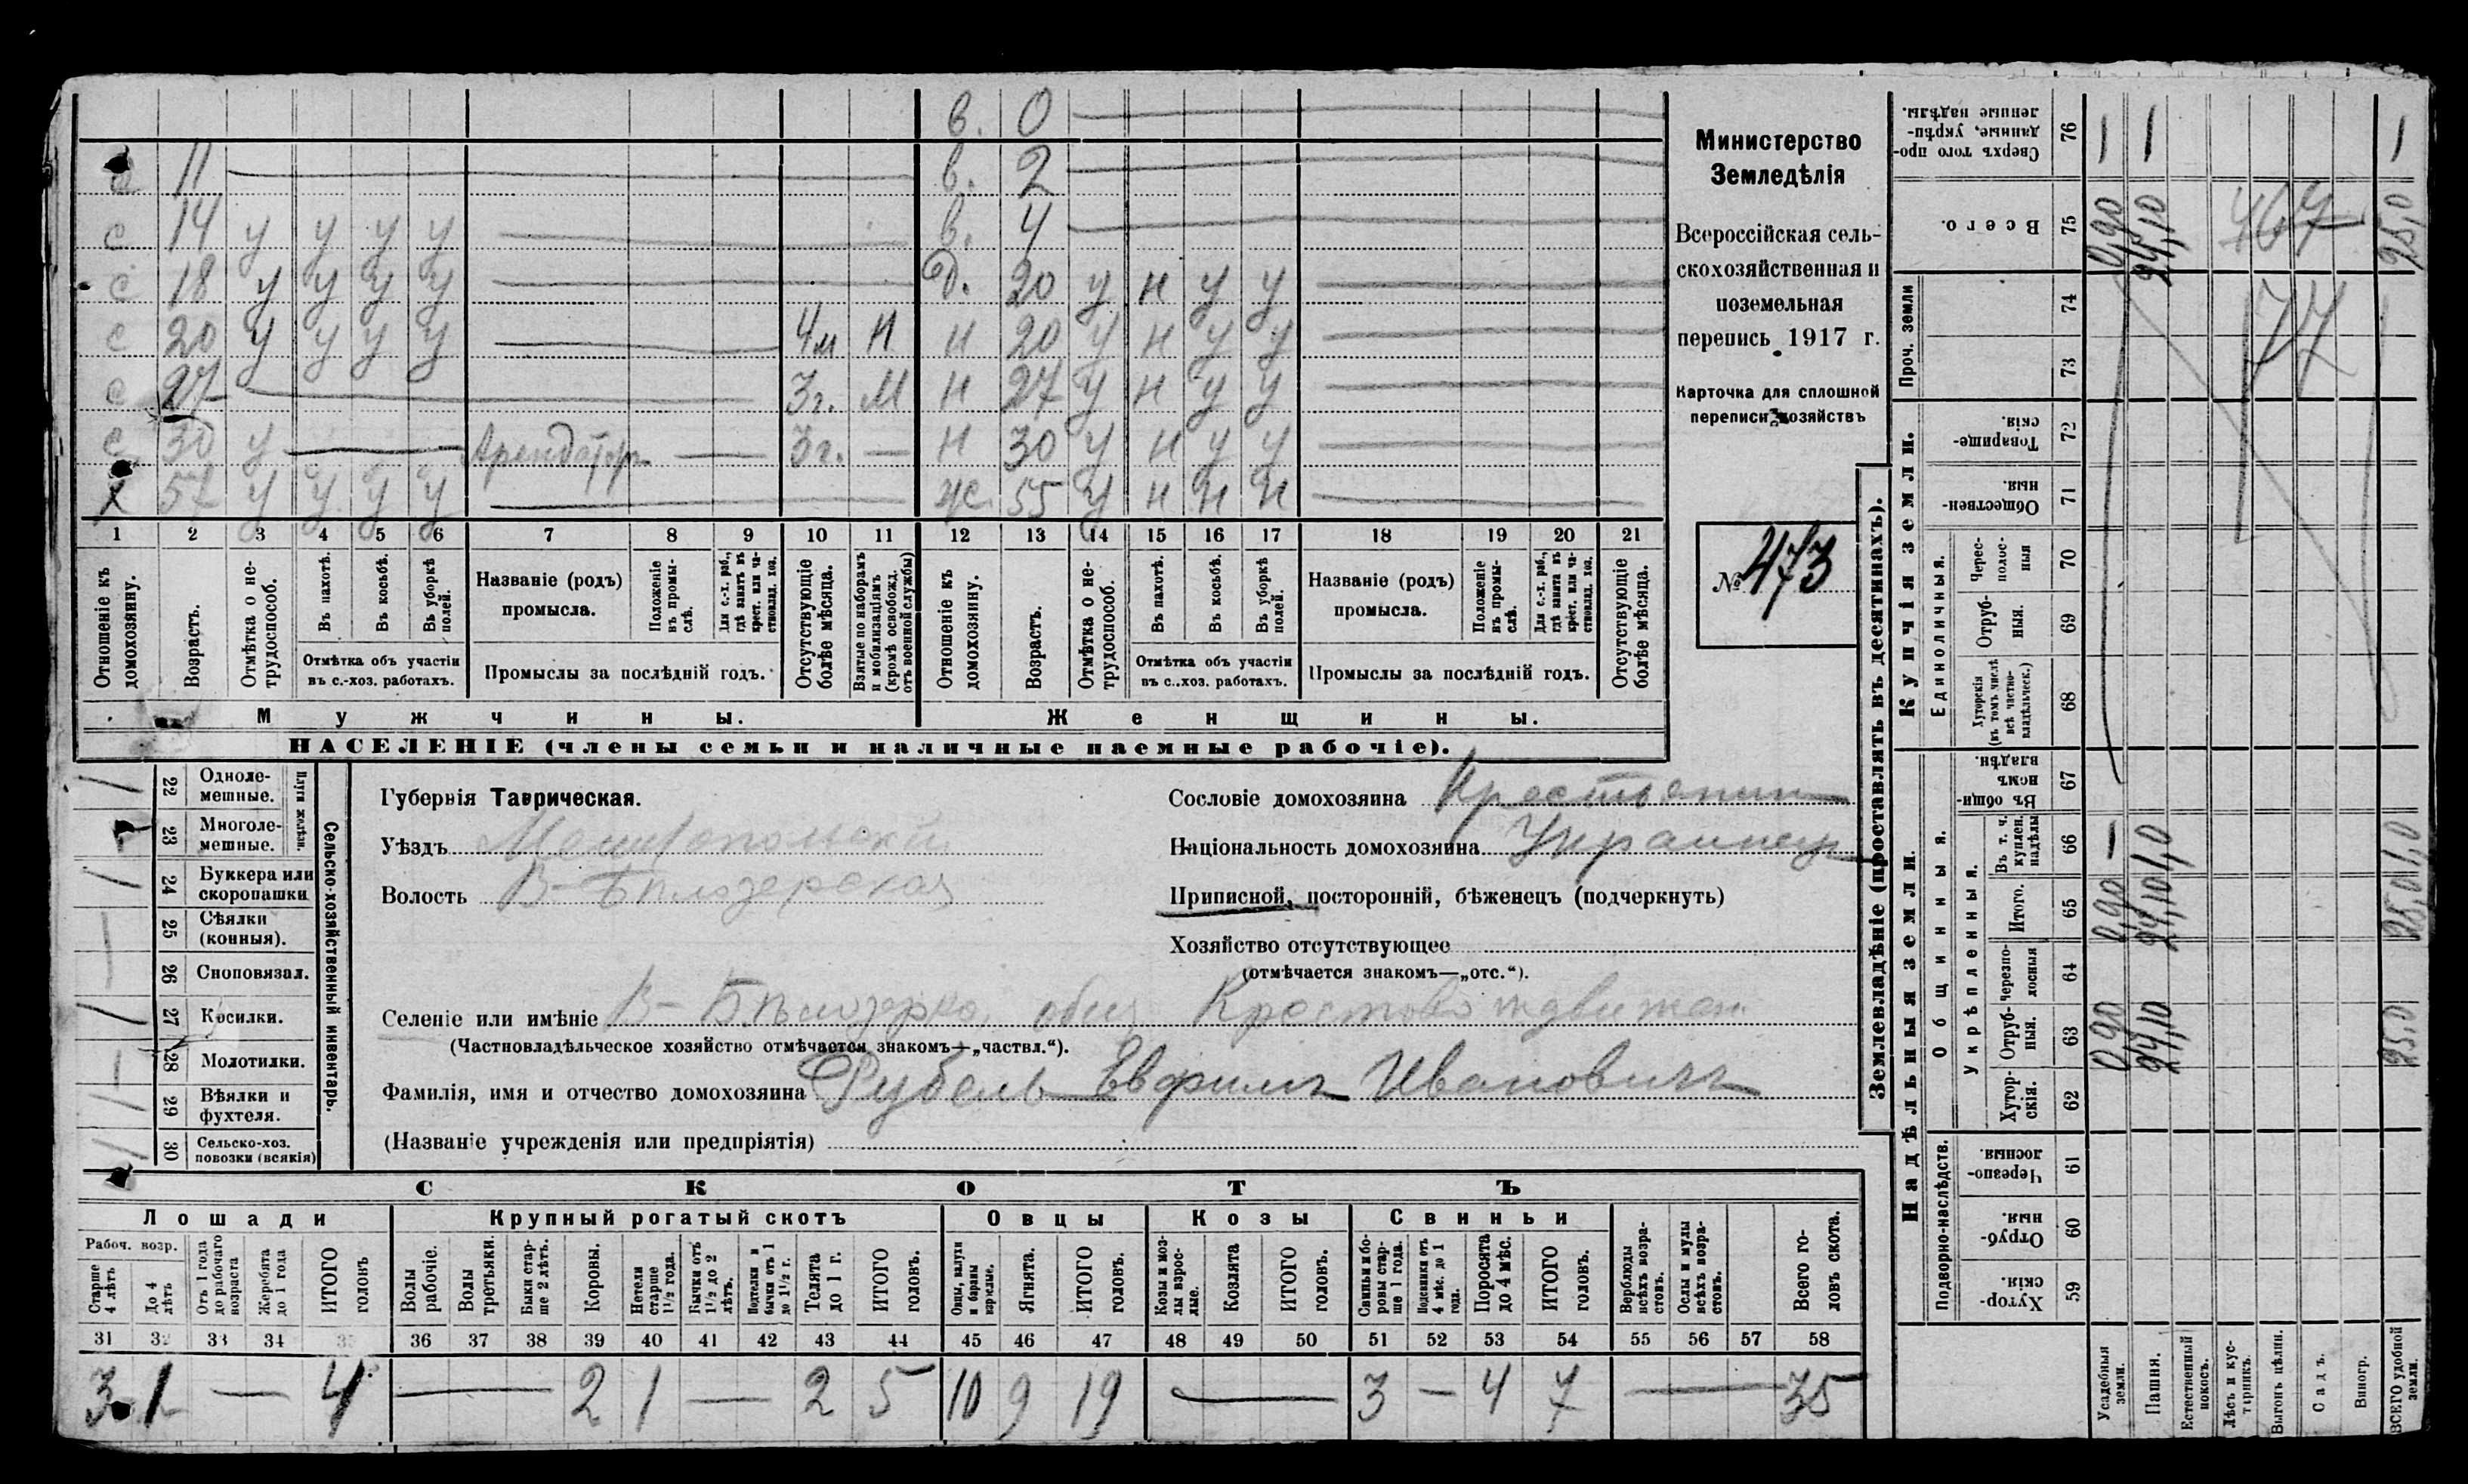 в. 0
11 в. 2
с 14 у у у у в. 4
с 18 у у у у д. 20 у н у у
с 20 у у у у 4м Н н 20 у н у у
с 27 3г. М н 27 у н у у
с 30 у Арендаторъ 3г. — н 30 у н у у
х 57 у у у у ж. 55 у н н н
1 2 3 4 5 6 7 8 9 10 11 12 13 14 15 16 17 18 19 20 21
Отношеніе къ домохозяину.
Возрастъ.
Отмѣтка о не-трудоспособ.
Въ пахотѣ.
Въ косьбѣ.
Въ уборкѣ полей.
Отмѣтка объ участіи
въ с.-хоз. работахъ.
Названіе (родъ)
промысла.
Положеніе въ промы-слѣ.
Для с.-х. раб., гдѣ занятъ въ крест. или ча-стновлад. хоз.
Промыслы за послѣдній годъ.
Отсутствующіе болѣе мѣсяца.
Взятые по наборамъ и мобилизаціямъ (кромѣ освобожд. отъ военной службы)
Отношеніе къ домохозяину.
Возрастъ.
Отмѣтка о не-трудоспособ.
Въ пахотѣ.
Въ косьбѣ.
Въ уборкѣ полей.
Отмѣтка объ участіи
въ с..хоз. работахъ.
Названіе (родъ)
промысла.
Положеніе въ промы-слѣ.
Для с.-х. раб., гдѣ занятъ въ крест. или ча-стновлад. хоз.
Промыслы за послѣдній годъ.
Отсутствующіе болѣе мѣсяца.
Мужчины.
Женщины.
НАСЕЛЕНІЕ (члены семьи и наличные наемные рабочіе).
Министерство
Земледѣлія
Всероссійская сель-
скохозяйственная и
поземельная
перепись 1917 г.
Карточка для сплошной
переписи хозяйствъ
№ 473
Сельско-хозяйственный инвентарь.
Плуги желѣзн.
22 Одноле-мешные.
23 Многоле-мешные.
24 Буккера или скоропашки
25 Сѣялки (конныя).
26 Сноповязал.
27 Косилки.
28 Молотилки.
29 Вѣялки и фухтеля.
30 Сельско-хоз. повозки (всякія)
Губернія Таврическая.
Уѣздъ Мелитопольскій
Волость В-Бѣлозерская
Сословіе домохозяина Крестьянин
Національность домохозяина Украинец
Приписной, посторонній, бѣженецъ (подчеркнуть)
Хозяйство отсутствующее
(отмѣчается знакомъ—„отс.“).
Селеніе или имѣніе В- Бѣлозерка, общ Крестовоздвижен
(Частновладѣльческое хозяйство отмѣчается знакомъ—„частвл.“).
Фамилія, имя и отчество домохозяина Рубель Евфимъ Ивановичъ
(Названіе учрежденія или предпріятія)
СКОТЪ
Лошади Крупный рогатый скотъ Овцы Козы Свиньи
Рабоч. возр.
Старше 4 лѣтъ
До 4 лѣтъ
Отъ 1 года до рабочаго возраста
Жеребята до 1 года
ИТОГО головъ
Волы рабочіе.
Волы третьяки.
Быки стар-ше 2 лѣтъ.
Коровы.
Нетели старше 1½ года.
Бычки отъ 1½ до 2 лѣтъ.
Нетелки и бычки отъ 1 до 1½ г.
Телята до 1 г.
ИТОГО головъ.
Овцы, валухи и бараны взрослые.
Ягнята.
ИТОГО головъ.
Козы и коз-лы взрос-лые.
Козлята
ИТОГО головъ.
Свиньи и бо-ровы стар-ше 1 года.
Подсвинки отъ 4 мѣс. до 1 года.
Поросята до 4 мѣс.
ИТОГО головъ.
Верблюды всѣхъ возра-стовъ.
Ослы и мулы всѣхъ возра-стовъ.
Всего го-ловъ скота.
31 32 33 34 35 36 37 38 39 40 41 42 43 44 45 46 47 48 49 50 51 52 53 54 55 56 57 58
3 1 — 4 — 2 1 — 2 5 10 9 19 — 3 — 4 7 — 35
Землевладѣніе (проставлять въ десятинахъ).
Надѣльныя земли. Купчія земли.
Подворно-наслѣдств.
Общинныя.
Укрѣпленныя.
Единоличныя.
Проч. земли
59 Хутор-скія.
60 Отруб-ныя.
61 Черезпо-лосныя.
62 Хутор-скія.
63 Отруб-ныя.
64 Черезпо-лосныя
65 Итого.
66 Въ т. ч. куплен. надѣлы
67 Въ общин-номъ владѣн.
68 Хуторскія (въ томъ числѣ всѣ частно-владѣльческ.)
69 Отруб-ныя.
70 Черес-полос-ныя
71 Обществен-ныя.
72 Товарище-скія.
73
74
75 Всего.
76 Сверхъ того про-данные, укрѣп-ленные надѣлы.
Усадебныя земли. 0,90 0,90 — 0,90
Пашня. 24,10 24,10 1,0 24,10
Естественный покосъ.
Лѣсъ и кус-тарникъ.
Выгонъ цѣлин.
Садъ.
Виногр.
ВСЕГО удобной земли. 25,0 25,0 1,0 25,0
467
77